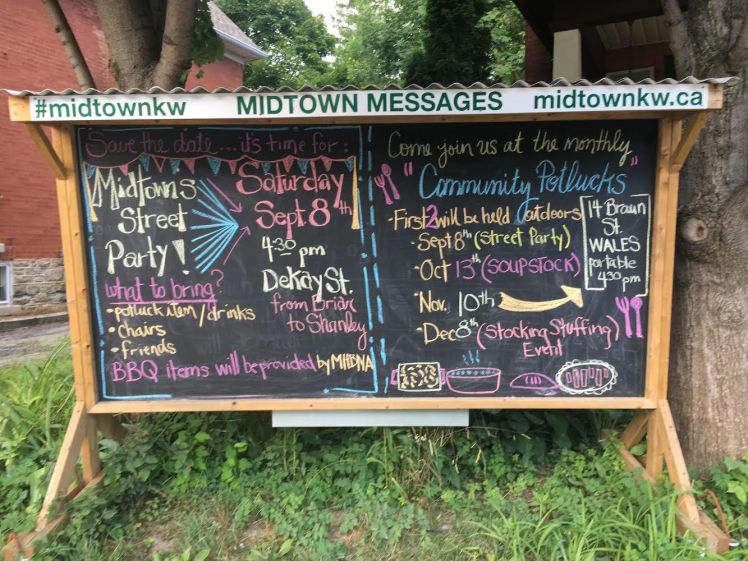 #midtownkw MIDTOWN MESSAGES midtownkw.ca
Save the date...it's time for:
Midtown's
Street
Party!
Saturday
Sept. 8th
4:30 pm
DeKay St.
from Briar
to Shanley
what to bring?
•potluck item/drinks
•chairs
•friends
BBQ items will be provided by MHBNA
Come join us at the monthly
"Community Potlucks"
•First 2 will be held outdoors
•Sept 8th (Street Party)
•Oct 13th (SOUPSTOCK)
•Nov. 10th
•Dec 8th (Stocking Stuffing)
Event
14 Braun
St.
WALES
portable
4:30 pm